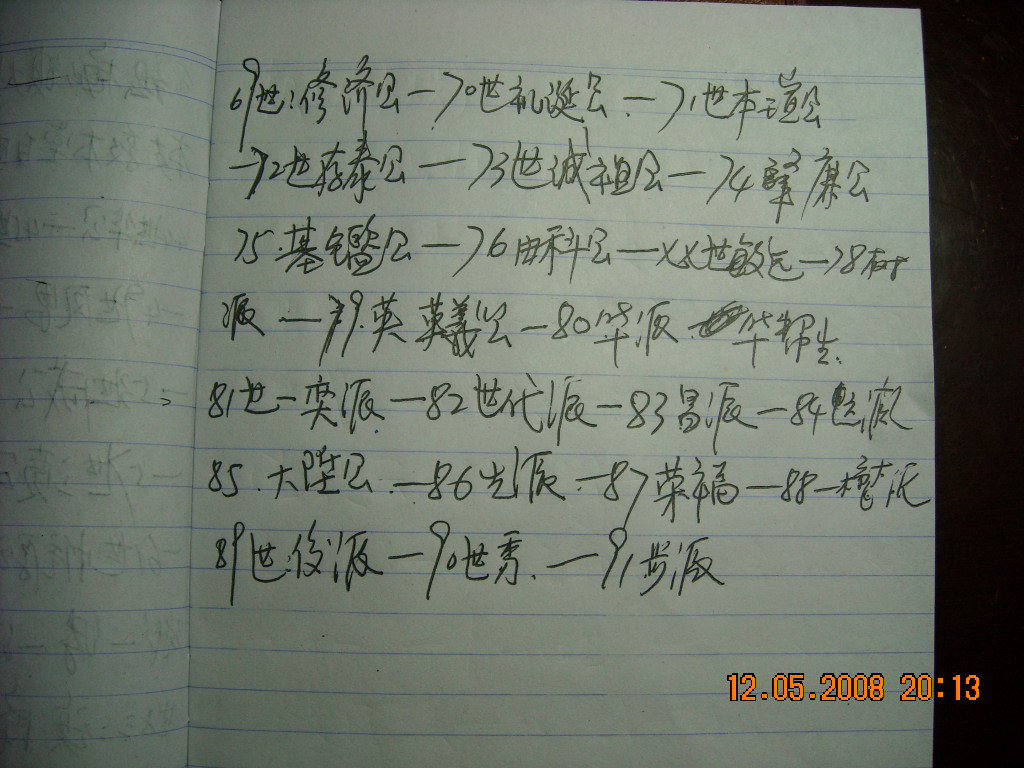 69世:修济公—70世礼诞公.—71世本瑄公
—72世存泰公—73世诚祖公—74肇康公
75.基鑑公—76由科公—xx世敏远—78树
派—79.英英義公—80华派.华邦生.
81世一奕派—82世代派—83昌派—84派
85.大陞公.—86光派.—87荣福—88—派
89世.俊派—90世秀.—91派
12.05.2008 20:13